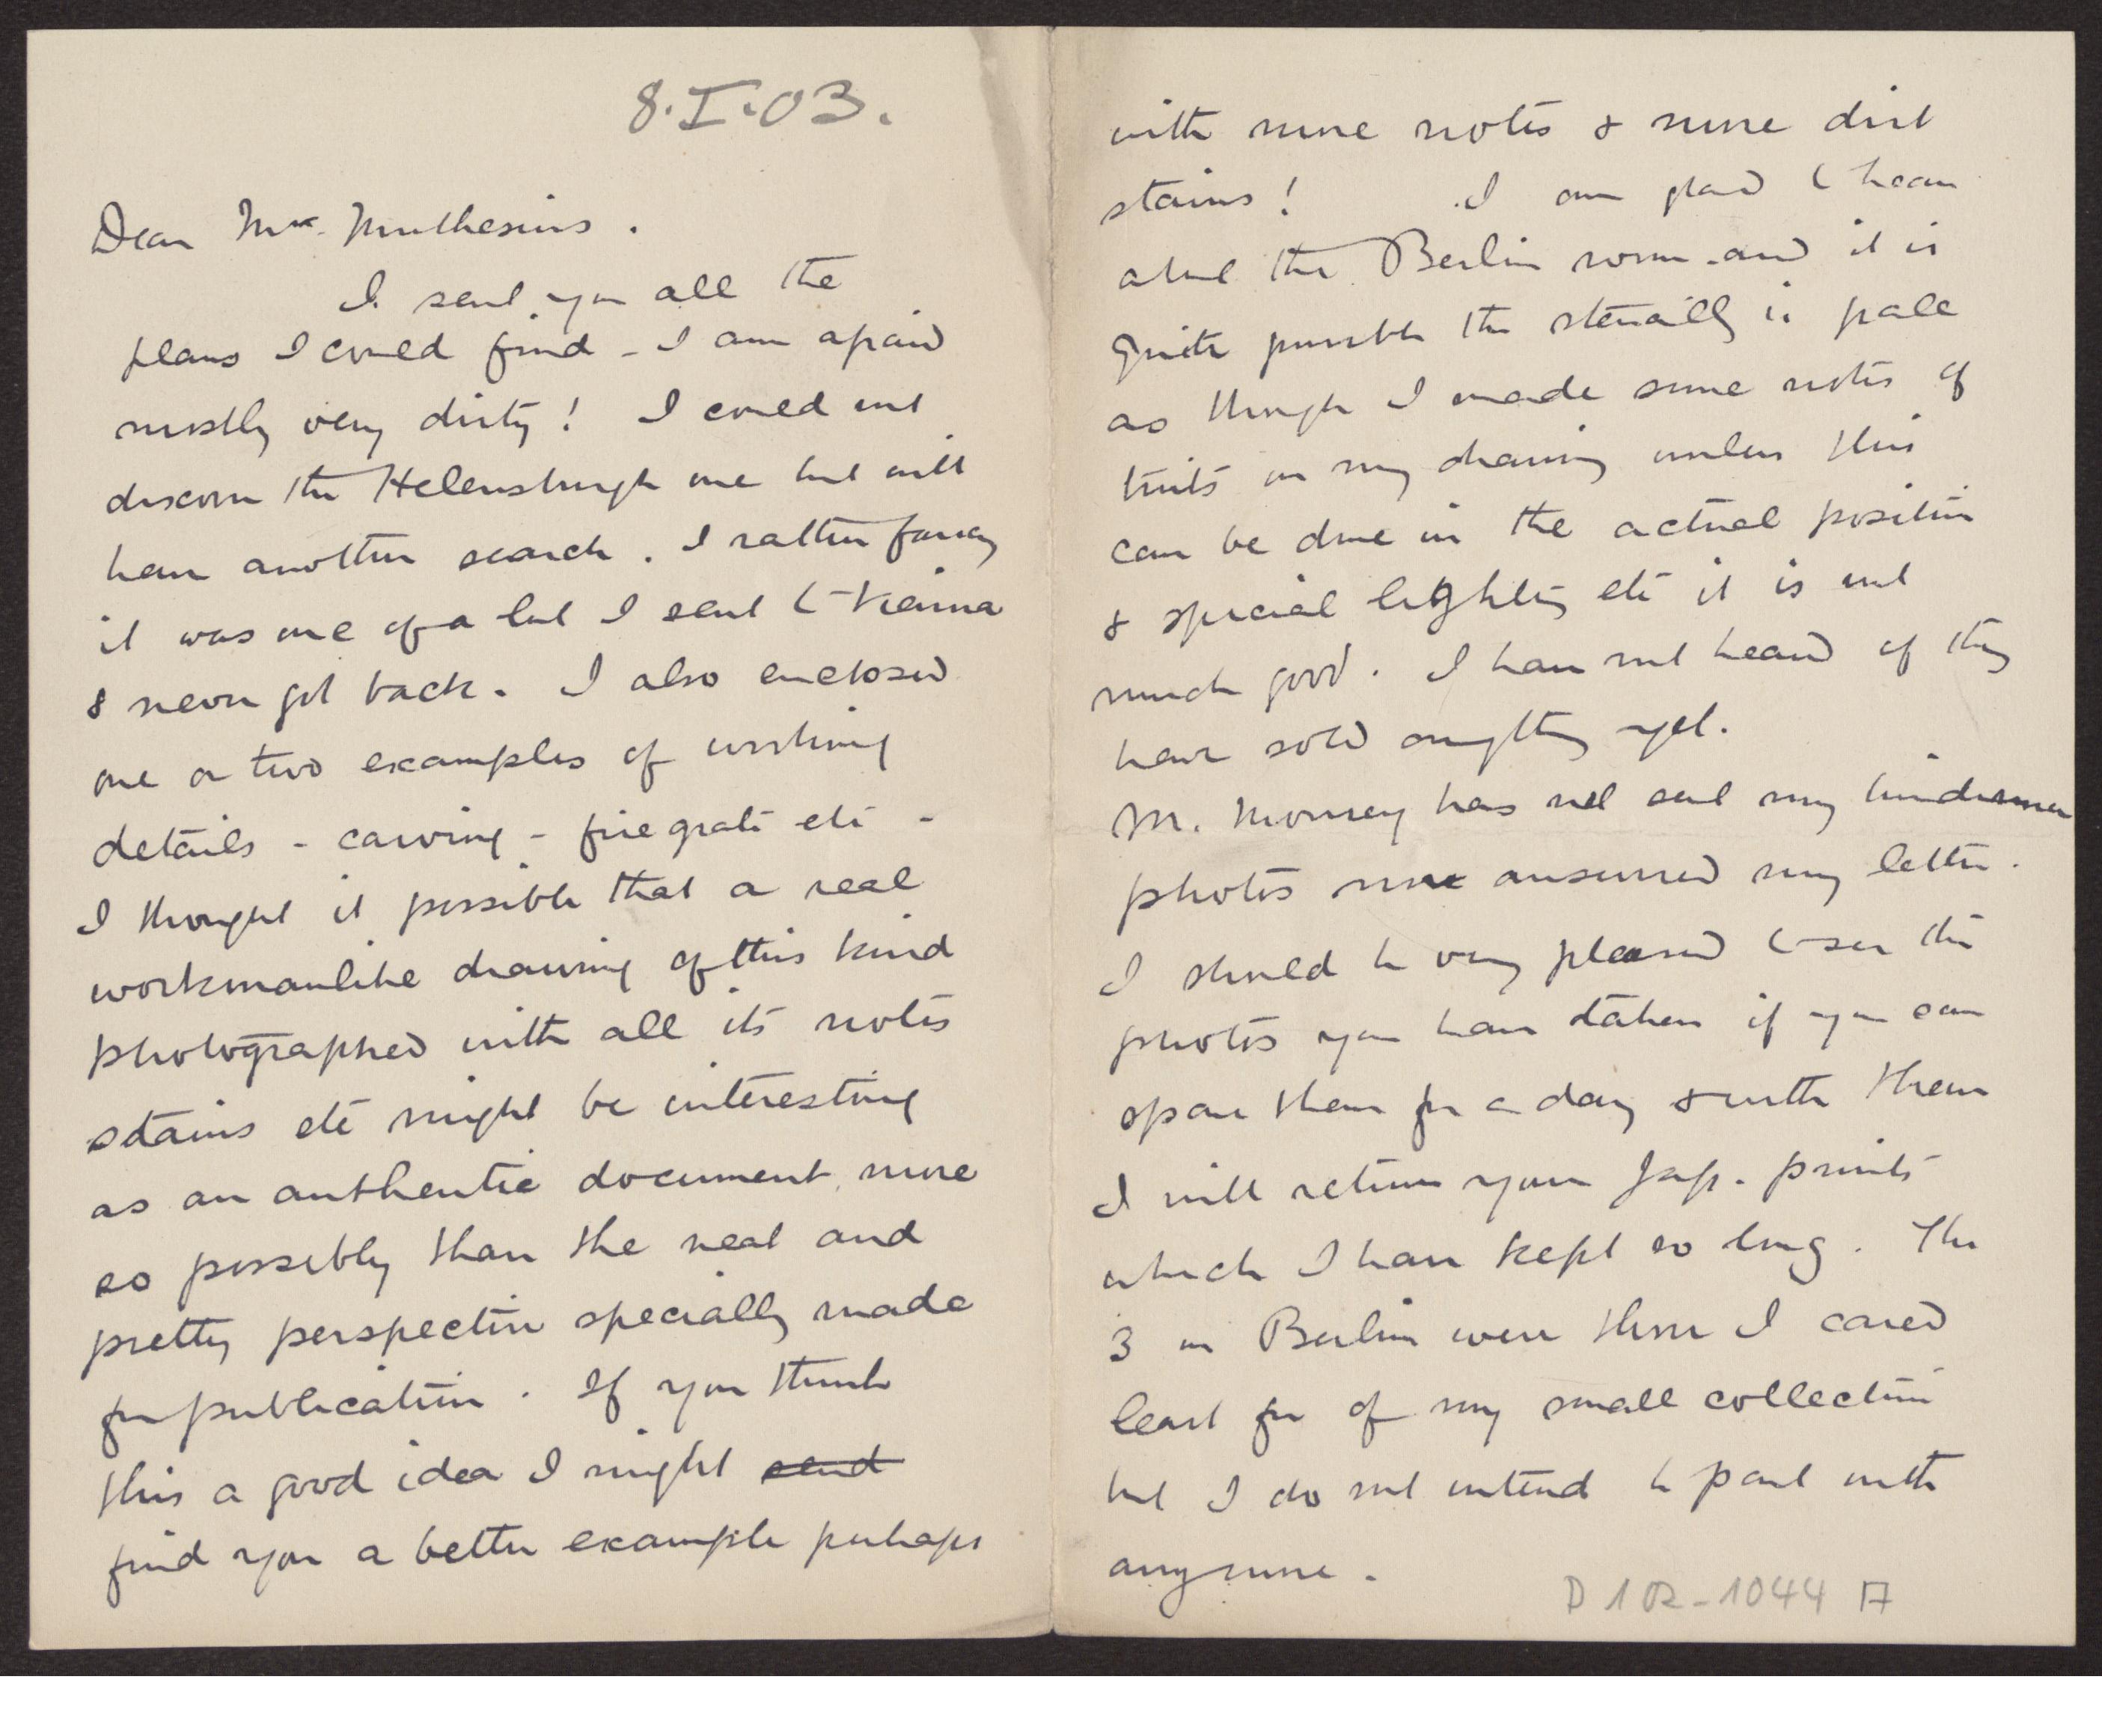 8.I.03.
Dear Mrs. Muthesius.
I send you all the
plans I could find - I am afraid
mostly very dirty! I could not
discover the Helensburgh one but will
have another search. I rather fancy
it was one of a lot I sent to Vienna
& never got back. I also enclosed
one or two examples of working
details - carving - fire grate etc -
I thought it possible that a real
workmanlike drawing of this kind
photographed with all its notes
stains etc might be interesting
as an authentic document, more
so possibly than the neat and
pretty perspective specially made
for publication. If you think
this a good idea I might send
find you a better example perhaps
with more notes & more dirt
stains! I am glad to hear
about the Berlin room - and it is
quite possible the stencilling is pale
as though I made some notes of
tints on my drawing unless this
can be done in the actual position
& special lighting etc it is not
much good. I have not heard if they
have sold anything yet.
M. has not sent my
photos nor answered my letter.
I should be very pleased to see the
photos you have taken if you can
spare them for a day & with them
I will return your Jap. prints
which I have kept so long. The
3 in Berlin were those I cared
least for of my small collection
but I do not intend to part with
any more.
D 102-1044 A